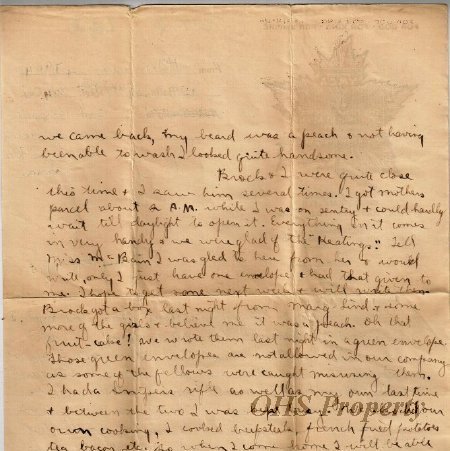 we came back, my beard was a peach & not having
been able to wash I looked quite handsome.
Brock & I were quite close
this time & I saw him several times. I got mothers
parcel about 2 A.M. while I was on sentry & could hardly
wait till daylight to open it. Everything in it comes
in very handy & we were glad of the "Heatings." Tell
Miss McBain I was glad to hear from her & would
write, only I just have one envelope & had that given to
me. I hope to get some next week & will write then.
Brock got a box last night from Marg Lind & some
more of the girls & believe me it was a peach. Oh that
fruit-cake! We wrote them last night in a green envelope.
Those green envelopes are not allowed in our company
as some of the fellows were caught misusing them.
I had a snipers rifle as well as my own last time
& between the two I was
OHS Property
own cooking, I cooked beefsteak & french fried potatoes
tea bacon, etc. So when I come home I will be able